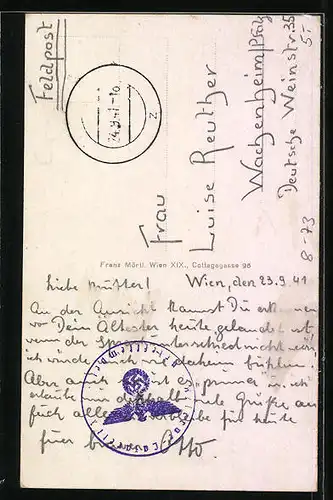 Feldpost
24.9.41.-10
z
Frau
Luise Reuther
Wachenheim/Pfalz
Deutsche Weinstr. 35
5.-
8-73
Franz Mörtl. Wien XIX., Cottagegasse 96
Wien, den 23.9.41
Liebe Mutter!
An der Ansicht kannst Du erkennen
wo Dein Ältester heute gelandet ist
wenn der nicht wär,
ich würde mich daheim fühlen.
Aber auch ist es prima
viele Grüße an
Euch alle für heute
Euer